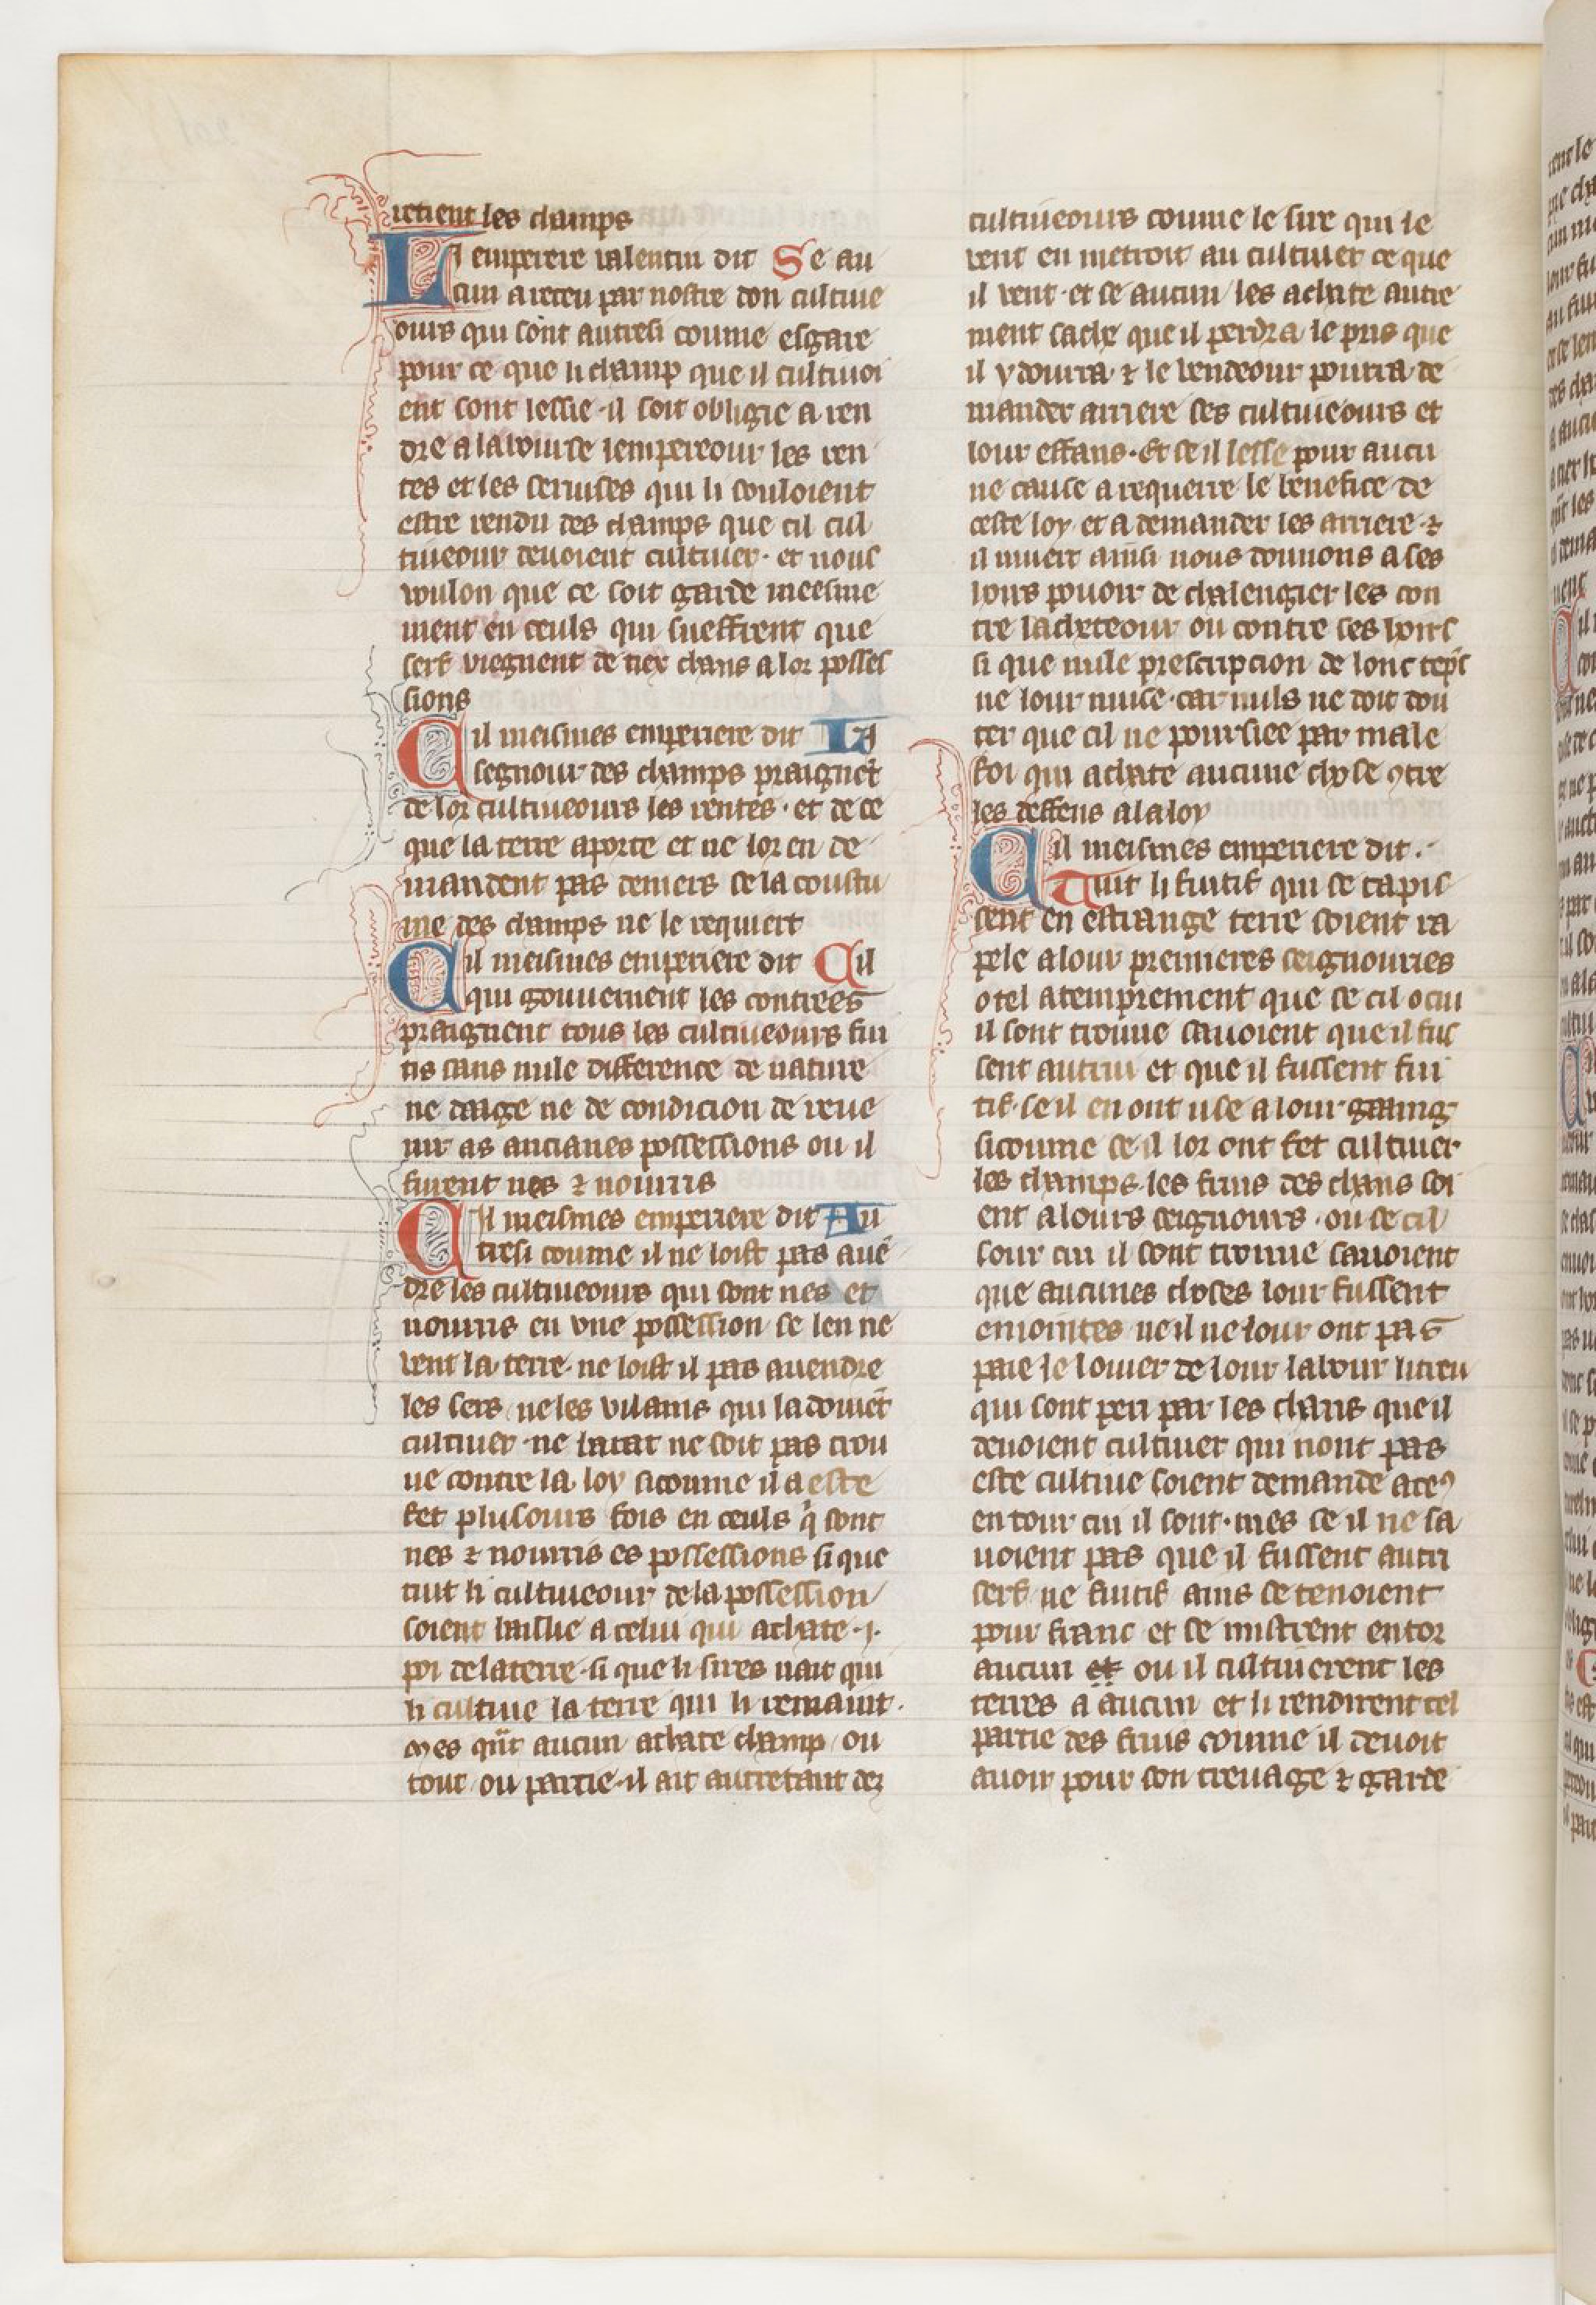 retient les champs
Li emperere valentin dit Se au
cun a receu par nostre don cultiue
ours qui sont autresi coume esgare
pour ce que li champ que il cultiuoi
ent sont lessie · il soit obligie a ren
dre a la bourse lempereour les ren
tes et les seruises qui li souloient
estre rendu des champs que cil cul
tiueour deuoient cultiuer · et nous
voulon que ce soit garde meesme
ment en ceuls qui sueffrent que
serf viegnent de tiex chans a lor posses
sions
Cil meismes emperiere dit Li
segnour des champs praignēt
de lor cultiueours les rentes · et de ce
que la terre aporte et ne lor en de
mandent pas deniers se la coustu
me des champs ne le requiert
Cil meismes emperiere dit Cil
qui gouuernent les contrees
praignent tous les cultiueours fui
tis sans nule difference de nature
ne daage ne de condicion de reue
nir as ancianes possessions ou il
furent nes ⁊ nourris
Cil meismes emperiere dit Au
tresi coume il ne loist pas auē
dre les cultiueours qui sont nes et
nourris en vne possession se len ne
vent la terre · ne loist il pas auendre
les sers ne les vilains qui la doiuēt
cultiuer · ne barat ne soit pas trou
ue contre la loy sicoume il a este
fet plusours fois en ceuls q̇ sont
nes ⁊ nourris es possessions si que
tuit li cultiueour de la possession
soient baillie a celui qui achate · j ·
poi de la terre · si que li sires nait qui
li cultiue la terre qui li remaint ·
mes qñt aucun achate champ ou
tout ou partie · il ait autretant des
cultiueours coume le sire qui le
vent en metroit au cultiuer ce que
il vent · et se aucun les achate autre
ment sache que il perdra le pris que
il y dourra ⁊ le vendeour pourra de
mander arriere ses cultiueours et
lour effans · Et se il lesse pour aucu
ne cause a requerre le benefice de
ceste loy et a demander les arriere · ⁊
il muert ainsi nous donnons a ses
hoirs pouoir de chalengier les con
tre lacheteour ou contre ses hoirs
si que nule prescripcion de lonc tēps
ne lour nuise · car nuls ne doit dou
ter que cil ne poursiee par male
foi qui achate aucune chose 9tre
les deffens a la loy
Cil meismes emperiere dit ·
Tuit li fuitif qui se tapis
sent en estrange terre soient ra
pele a lour premieres seignouries
o tel atemprement que se cil o cui
il sont trouue sauoient que il fus
sent autrui et que il fussent fui
tif · se il en ont use a lour gaaing
sicoume se il lor ont fet cultiuer
les champs · les fruis des chans soi
ent a lours seignours · ou se cil
sour cui il sont trouue sauoient
que aucunes choses lour fussent
eniointes ne il ne lour ont pas
paie le louier de lour labour li treu
qui sont peri par les chans que il
deuoient cultiuer qui nont pas
este cultiue soient demande a ceꝰ
entour cui il sont · mes se il ne sa
uoient pas que il fussent autri
serf ne fuitif ains se tenoient
pour franc et se mistrent entor
aucun et ou il cultiuerent les
terres a aucun et li rendirent tel
partie des fruis coume il deuoit
auoir pour son treuage ⁊ garde